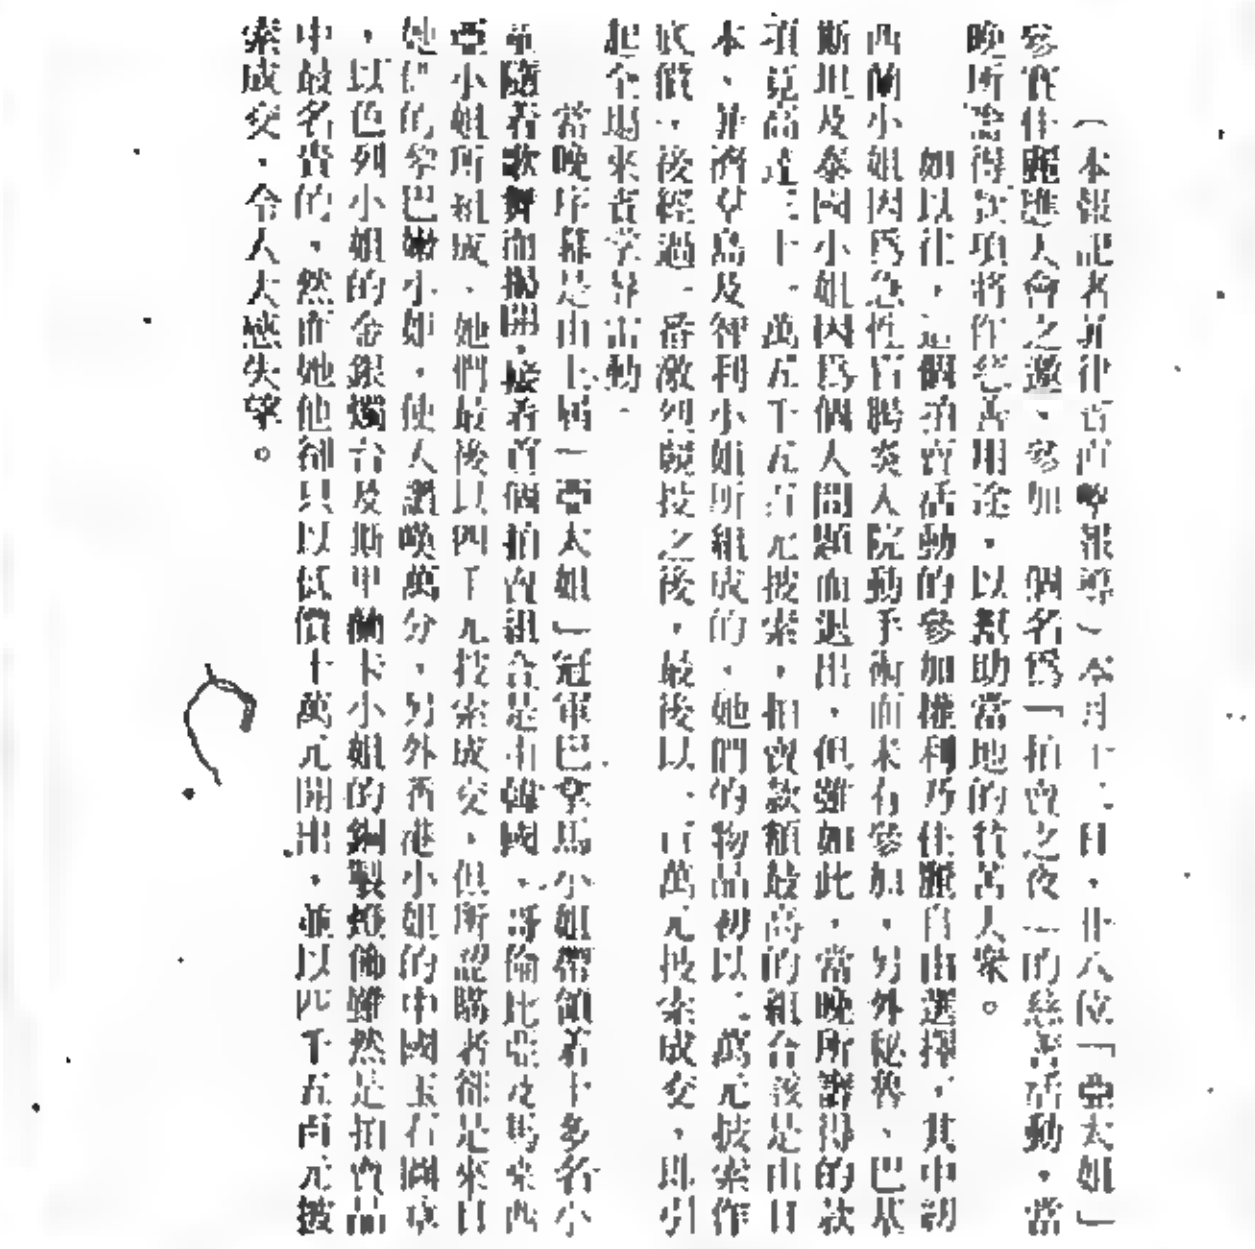 （本報記者菲律賓直擊報導）本月十二日，廿八位「亞太姐」
參賽佳麗應大會之邀，參加一個名為「拍賣之夜」的慈善活動，當
晚所籌得款項將作慈善用途，以幫助當地的貧苦人衆。
如以往，這個拍賣活動的參加權利乃佳麗自由選擇，其中錫
西蘭小姐因爲急性盲腸炎入院動手術而未有參加，另外秘魯、巴基
斯坦及泰國小姐因爲個人問題而退出，但雖如此，當晚所籌得的款
項竟高達三十一萬五千五百元披索，拍賣款額最高的組合該是由日
本、菲濟羣島及智利小姐所組成的，她們的物品初以二萬元披索作
底價，後經過一番激烈競投之後，最後以一百萬元披索成交，即引
起全場來賓掌聲雷動。
當晚序幕是由上屆「亞太姐」冠軍巴拿馬小姐帶領着十多名小
童隨着歌舞而揭開，接着首個拍賣組合是由韓國、哥倫比亞及馬來西
亞小姐所組成，她們最後以四千元披索成交，但所認購者卻是來自
她們的黎巴嫩小姐，使人讚嘆萬分，另外香港小姐的中國玉石圖章
，以色列小姐的金銀燭台及斯里蘭卡小姐的銅製燈飾雖然是拍賣品
中最名貴的，然而她他卻只以低價十萬元開出，並以四千五百元披
索成交，令人大感失望。